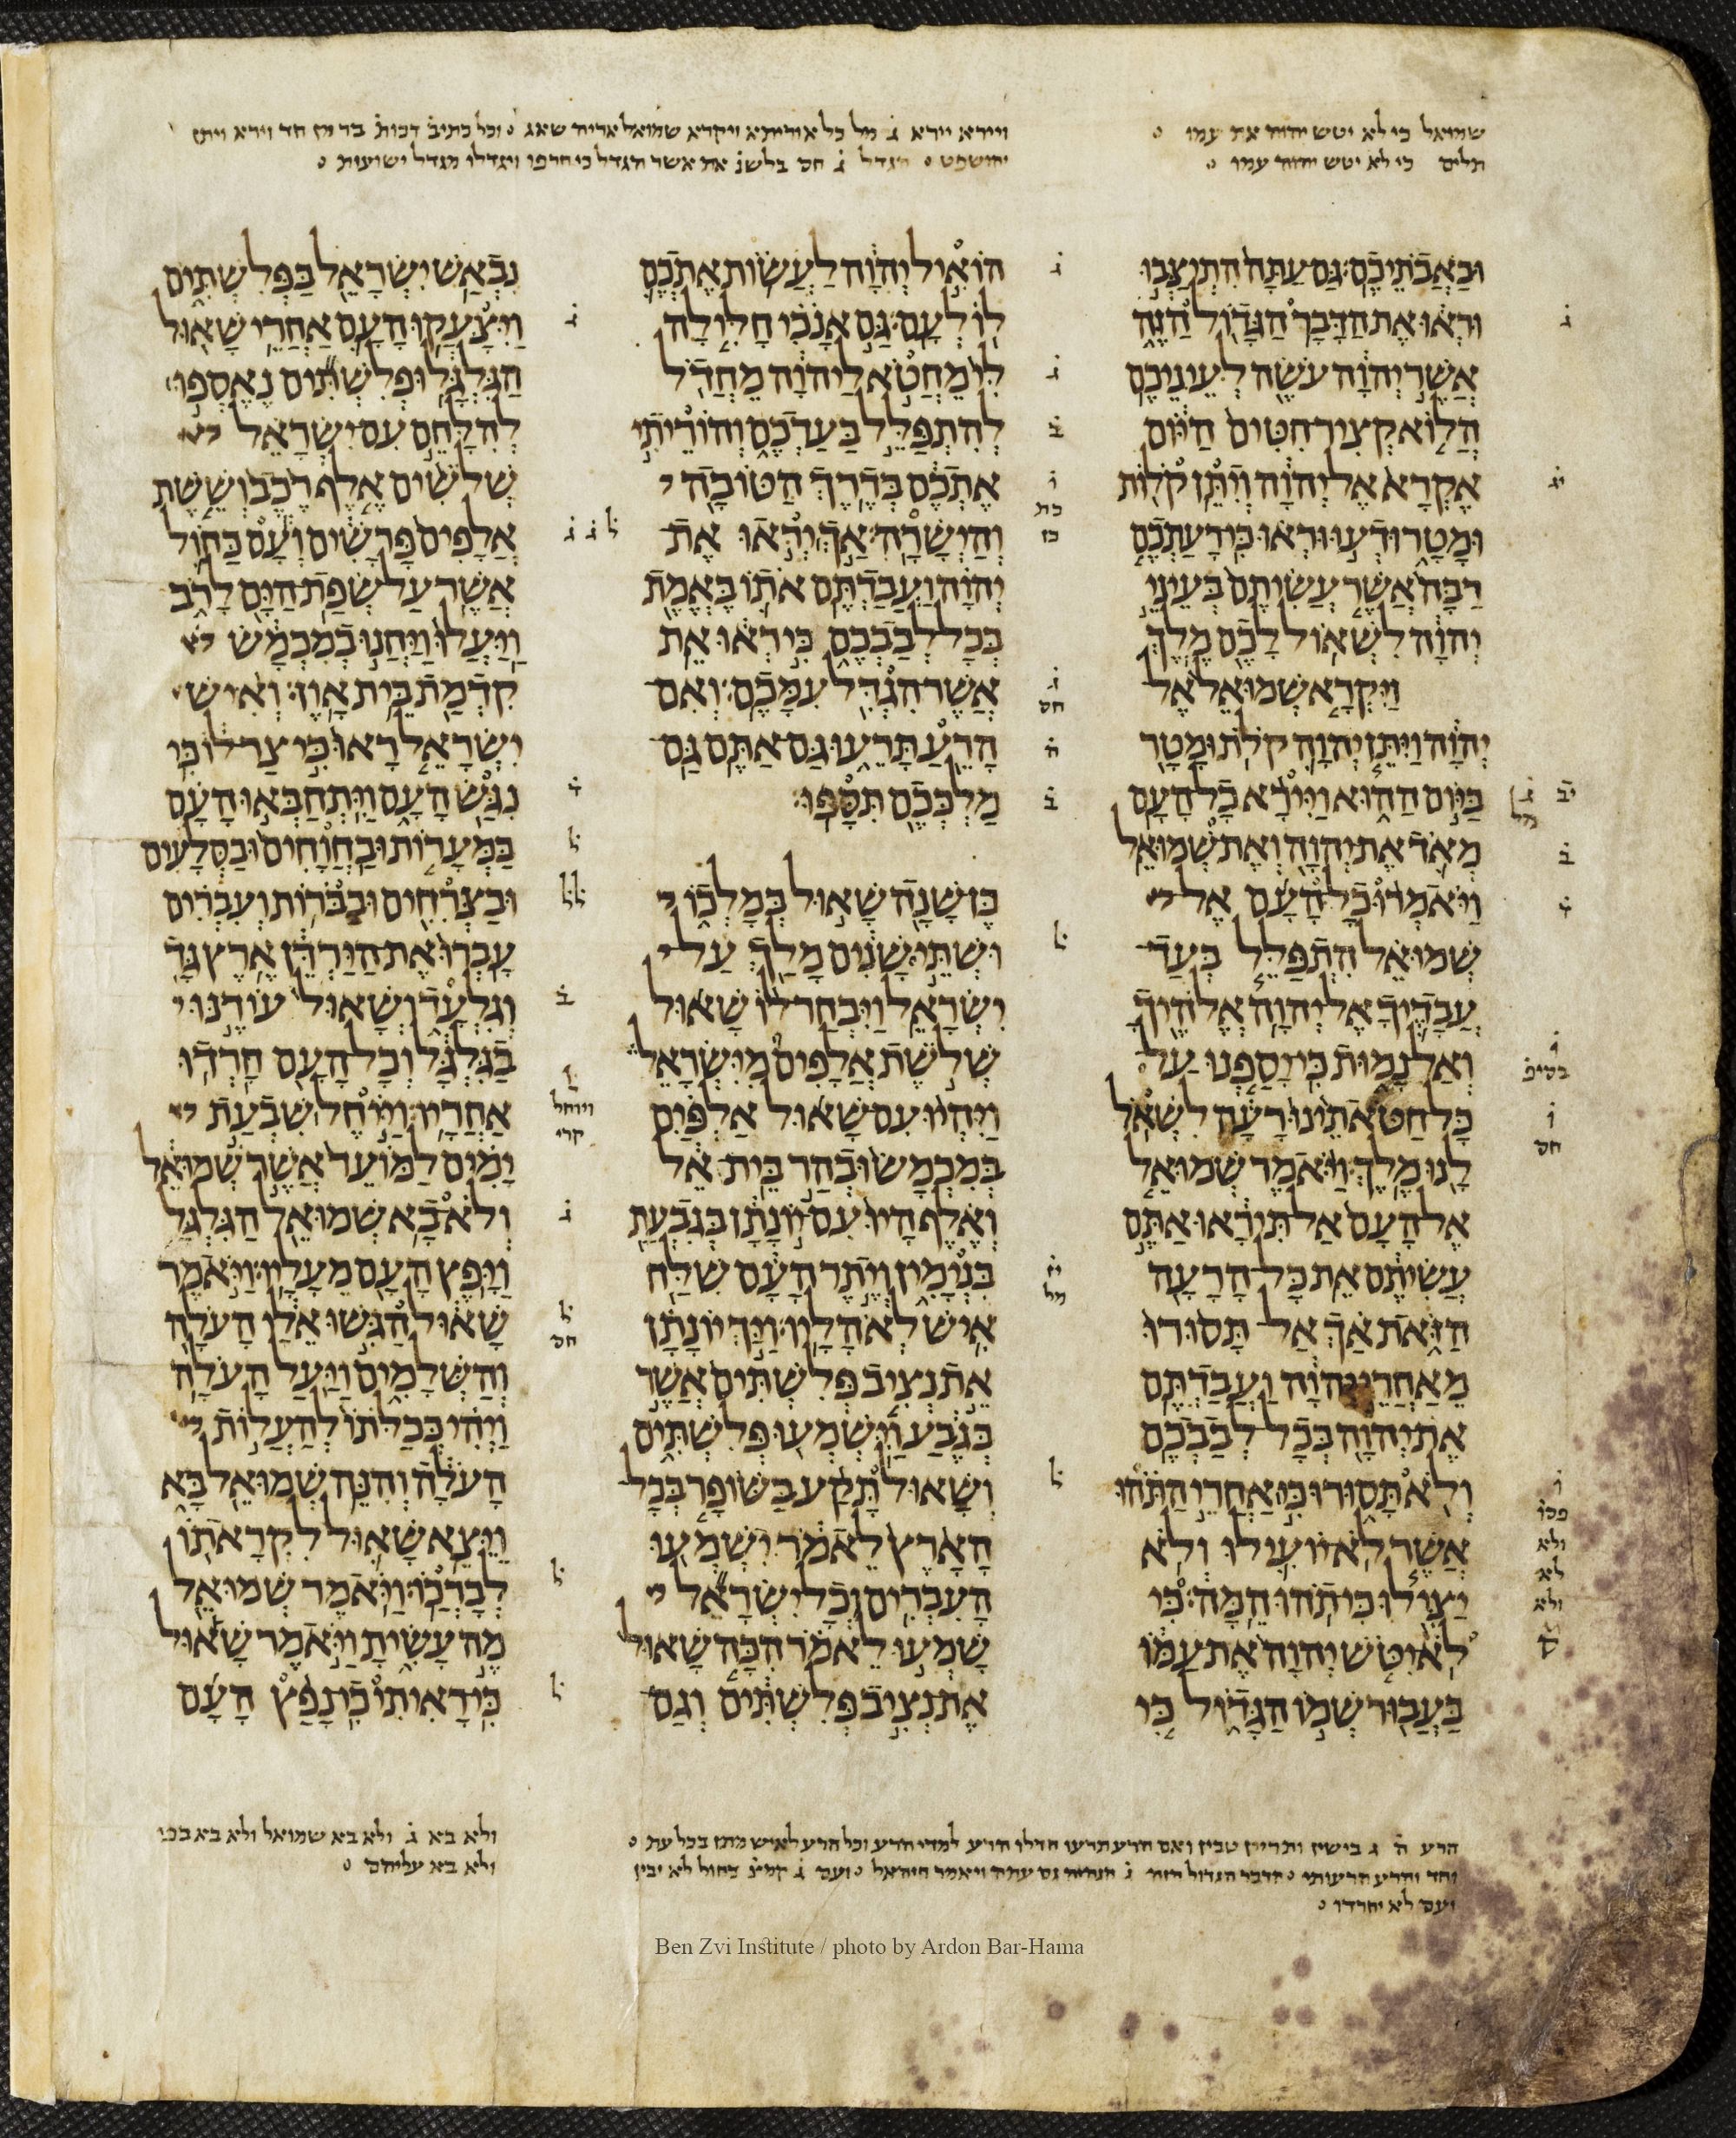 שמואל כי לא יטש יהוה את עמו
תלים כי לא יטש יהוה עמו
שמואל אריה שאג ׄ וכל כתיב דכות בר מן חד וירא ויתן
יהושפט ׄ הגדל ג חס בלשנ את אשר הגדל כי חרפו ויגדלו מגדל ישועות
וּבַאֲבֹתֵיכֶם׃ גַּם עַתָּה הִתְיַצְּבוּ
וּרְאוּ אֶת הַדָּבָר הַגָּדוֹל הַזֶּה
אֲשֶׁר יְהוָה עֹשֶׂה לְעֵינֵיכֶם׃
הֲלוֹא קְצִיר חִטִּים הַיּוֹם
אֶקְרָא אֶל יְהוָה וְיִתֵּן קֹלוֹת
וּמָטָר וּדְעוּ וּרְאוּ כִּי רָעַתְכֶם
רַבָּה אֲשֶׁר עֲשִׂיתֶם בְּעֵינֵי
יְהוָה לִשְׁאוֹל לָכֶם מֶלֶךְ׃
וַיִּקְרָא שְׁמוּאֵל אֶל
יְהוָה וַיִּתֵּן יְהוָה קֹלֹת וּמָטָר
בַּיּוֹם הַהוּא וַיִּירָא כָל הָעָם
מְאֹד אֶת יְהוָה וְאֶת שְׁמוּאֵל׃
וַיֹּאמְרוּ כָל הָעָם אֶל
שְׁמוּאֵל הִתְפַּלֵּל בְּעַד
עֲבָדֶיךָ אֶל יְהוָה אֱלֹהֶיךָ
וְאַל נָמוּת כִּי יָסַפְנוּ עַל
כָּל חַטֹּאתֵינוּ רָעָה לִשְׁאֹל
לָנוּ מֶלֶךְ׃ וַיֹּאמֶר שְׁמוּאֵל
אֶל הָעָם אַל תִּירָאוּ אַתֶּם
עֲשִׂיתֶם אֵת כָּל הָרָעָה
הַזֹּאת אַךְ אַל תָּסוּרוּ
מֵאַחֲרֵי יְהוָה וַעֲבַדְתֶּם
אֶת יְהוָה בְּכָל לְבַבְכֶם׃
וְלֹא תָּסוּרוּ כִּי אַחֲרֵי הַתֹּהוּ
אֲשֶׁר לֹא יוֹעִילוּ וְלֹא
יַצִּילוּ כִּי תֹהוּ הֵמָּה׃ כִּי
לֹא יִטֹּשׁ יְהוָה אֶת עַמּוֹ
בַּעֲבוּר שְׁמוֹ הַגָּדוֹל כִּי
הוֹאִיל יְהוָה לַעֲשׂוֹת אֶתְכֶם
לוֹ לְעָם׃ גַּם אָנֹכִי חָלִילָה
לִּי מֵחֲטֹא לַיהוָה מֵחֲדֹל
לְהִתְפַּלֵּל בַּעַדְכֶם וְהוֹרֵיתִי
אֶתְכֶם בְּדֶרֶךְ הַטּוֹבָה
וְהַיְשָׁרָה׃ אַךְ יְראוּ אֶת
יְהוָה וַעֲבַדְתֶּם אֹתוֹ בֶּאֱמֶת
בְּכָל לְבַבְכֶם כִּי רְאוּ אֵת
אֲשֶׁר הִגְדִּל עִמָּכֶם׃ וְאִם
הָרֵעַ תָּרֵעוּ גַּם אַתֶּם גַּם
מַלְכְּכֶם תִּסָּפוּ׃
בֶּן שָׁנָה שָׁאוּל בְּמָלְכוֹ
וּשְׁתֵּי שָׁנִים מָלַךְ עַל
יִשְׂרָאֵל׃ וַיִּבְחַר לוֹ שָׁאוּל
שְׁלֹשֶׁת אֲלָפִים מִיִּשְׂרָאֵל
וַיִּהְיוּ עִם שָׁאוּל אַלְפַּיִם
בְּמִכְמָשׂ וּבְהַר בֵּית אֵל
וְאֶלֶף הָיוּ עִם יוֹנָתָן בְּגִבְעַת
בִּנְיָמִין וְיֶתֶר הָעָם שִׁלַּח
אִישׁ לְאֹהָלָיו׃ וַיַּךְ יוֹנָתָן
אֵת נְצִיב פְּלִשְׁתִּים אֲשֶׁר
בְּגֶבַע וַיִּשְׁמְעוּ פְּלִשְׁתִּים
וְשָׁאוּל תָּקַע בַּשּׁוֹפָר בְּכָל
הָאָרֶץ לֵאמֹר יִשְׁמְעוּ
הָעִבְרִים׃ וְכָל יִשְׂרָאֵל
שָׁמְעוּ לֵאמֹר הִכָּה שָׁאוּל
אֶת נְצִיב פְּלִשְׁתִּים וְגַם
נִבְאַשׁ יִשְׂרָאֵל בַּפְּלִשְׁתִּים
וַיִּצָּעֲקוּ הָעָם אַחֲרֵי שָׁאוּל
הַגִּלְגָּל׃ וּפְלִשְׁתִּים נֶאֶסְפוּ
לְהִלָּחֵם עִם יִשְׂרָאֵל
שְׁלֹשִׁים אֶלֶף רֶכֶב וְשֵׁשֶׁת
אֲלָפִים פָּרָשִׁים וְעָם כַּחוֹל
אֲשֶׁר עַל שְׂפַת הַיָּם לָרֹב
וַיַּעֲלוּ וַיַּחֲנוּ בְמִכְמָשׂ
קִדְמַת בֵּית אָוֶן׃ וְאִישׁ
יִשְׂרָאֵל רָאוּ כִּי צַר לוֹ כִּי
נִגַּשׂ הָעָם וַיִּתְחַבְּאוּ הָעָם
בַּמְּעָרוֹת וּבַחֲוָחִים וּבַסְּלָעִים
וּבַצְּרִחִים וּבַבֹּרוֹת׃ וְעִבְרִים
עָבְרוּ אֶת הַיַּרְדֵּן אֶרֶץ גָּד
וְגִלְעָד וְשָׁאוּל עוֹדֶנּוּ
בַגִּלְגָּל וְכָל הָעָם חָרְדוּ
אַחֲרָיו׃ וַיּיחֶל שִׁבְעַת
יָמִים לַמּוֹעֵד אֲשֶׁר שְׁמוּאֵל
וְלֹא בָא שְׁמוּאֵל הַגִּלְגָּל
וַיָּפֶץ הָעָם מֵעָלָיו׃ וַיֹּאמֶר
שָׁאוּל הַגִּשׁוּ אֵלַי הָעֹלָה
וְהַשְּׁלָמִים וַיַּעַל הָעֹלָה׃
וַיְהִי כְּכַלֹּתוֹ לְהַעֲלוֹת
הָעֹלָה וְהִנֵּה שְׁמוּאֵל בָּא
וַיֵּצֵא שָׁאוּל לִקְרָאתוֹ
לְבָרֲכוֹ׃ וַיֹּאמֶר שְׁמוּאֵל
מֶה עָשִׂיתָ וַיֹּאמֶר שָׁאוּל
כִּי רָאִיתִי כִי נָפַץ הָעָם
הרע ה ג בישין ותריין טבין ואם הרע תרעו חדלו הרע למדי הרע וכל הרע לאיש מתן בכל עת
וחד והרע הרעותי ׄ הדבר הגדול הזה
ועם לא יחרדו
ולא בא ג ולא בא שמואל ולא בא בכו
ולא בא עליהם
Ben Zvi Institute / photo by Ardon Bar-Hama